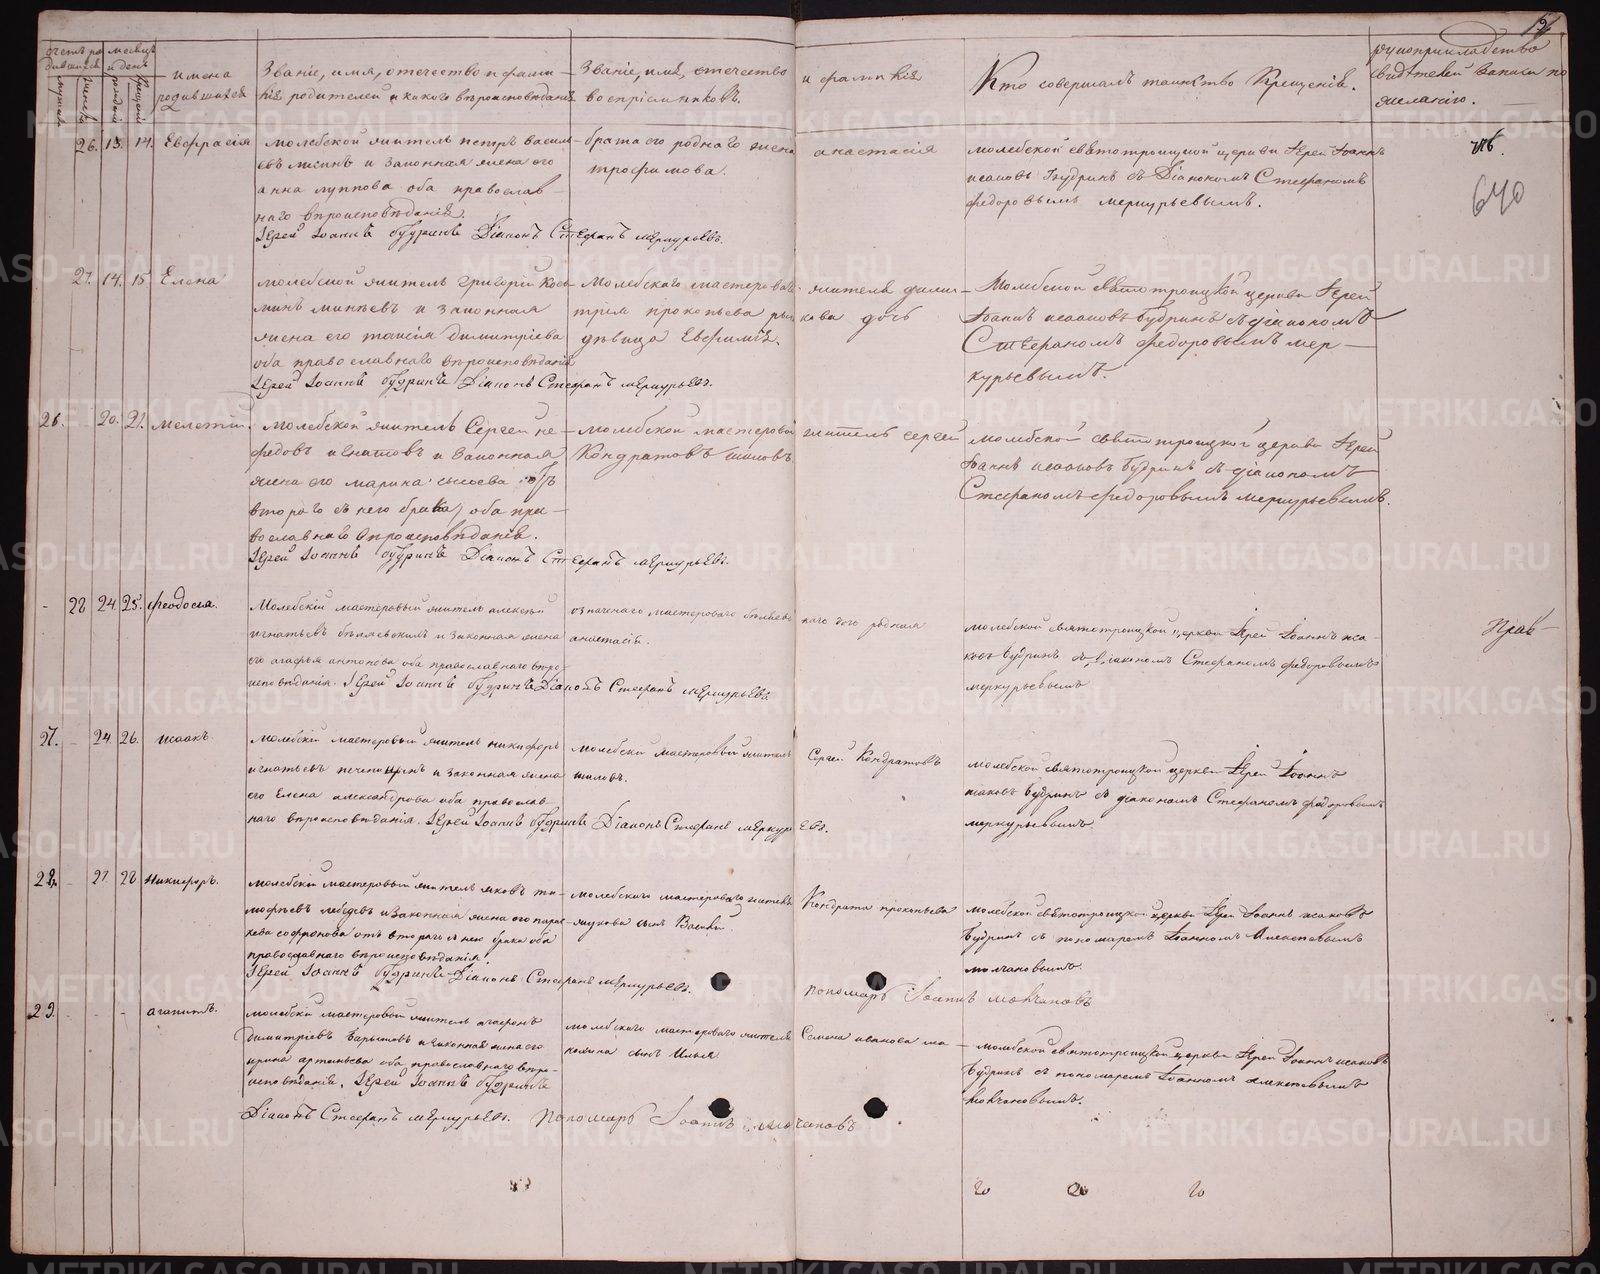 12
счетъ ро
дившихся
мѣсяцъ
и день
имена
родившихся
Званіе, имя, отечество и фами-
ліѣ родителей и какого вѣроисповѣданіѣ
Званіе, имя, отечество
воспріемниковъ.
и фамиліѣ
Кто совершалъ таинство Крещеніѣ.
рукоприкладство
свидѣтелей записи по
желанію.
26. 13. 14. Евфрасія
молебской житель петръ васили-
евъ и законная жена его
анна луппова оба православ-
наго вѣроисповѣданіѣ.
Іерей Іоаннъ Будринъ Діаконъ Стефанъ Меркурьевъ.
брата его роднаго жена
анастасія
трофимова.
молебской святотроицкой церкви Іерей Іоаннъ
исаковъ Будринъ съ Діакономъ Стефаномъ
федоровымъ меркурьевымъ.
640
27. 14. 15 Елена
молебской житель григорій косо-
минъ и законная
жена его таисія димитріева
оба православнаго вѣроисповѣданіѣ
Іерей Іоаннъ Будринъ Діаконъ Стефанъ Меркурьевъ.
Молебскаго мастероваго
жителя дими-
трія прокопьева
кова дочь
дѣвица Евфиміѣ.
Молебской святотроицкой церкви Іерей
Іоаннъ исаковъ Будринъ съ діакономъ
Стефаномъ федоровымъ мер-
курьевымъ.
26. 20. 21. мелетій.
молебской житель Сергей не-
федовъ игнатовъ и законная
жена его марина сысоева отъ
втораго съ него брака, оба пра-
вославнаго вѣроисповѣданіѣ.
Іерей Іоаннъ Будринъ Діаконъ Стефанъ Меркурьевъ.
молебской мастеровой
житель сергей
Кондратовъ шиловъ
молебской святотроицкой церкви Іерей
Іоаннъ исаковъ Будринъ съ діакономъ
Стефаномъ федоровымъ меркурьевымъ.
- 28 24. 25. феодосія.
Молебскій мастеровый житель алексѣй
игнатьевъ бѣляевскихъ и законная жена
его агафья антонова оба православнаго вѣро-
исповѣданія. Іерей Іоаннъ Будринъ Діаконъ Стефанъ Меркурьевъ.
означенаго мастероваго бѣляевс
каго дочь родная
анастасія.
молебской святотроицкой церкви Іерей Іоаннъ иса-
ковъ Будринъ съ діакономъ Стефаномъ федоровымъ
меркурьевымъ
27. - 24. 26. исаакъ.
молебскій мастеровый житель никифоръ
игнатьевъ печеницынъ и законная жена
его Елена александрова оба православ-
наго вѣроисповѣданія. Іерей Іоаннъ Будринъ Діаконъ Стефанъ Меркурьевъ.
молебской мастеровый житель
Сергей Кондратовъ
шиловъ.
молебской святотроицкой церкви Іерей Іоаннъ
исаковъ Будринъ съ діакономъ Стефаномъ федоровымъ
меркурьевымъ
28. - 27. 28 Никифоръ.
молебскій мастеровый житель яковъ ти-
мофѣевъ лебедевъ и Законная жена его парас-
кева софронова отъ втораго съ нею брака оба
православнаго вѣроисповѣданія.
Іерей Іоаннъ Будринъ Діаконъ Стефанъ Меркурьевъ.
молебскаго мастероваго жителя
Кондрата прокопьева
сынъ Василій.
пономарь Іоаннъ Молчановъ
молебской святотроицкой церкви Іерей Іоаннъ исаковъ
Будринъ съ пономаремъ Іоанномъ Алексѣевымъ
молчановымъ.
29. - - - агапитъ.
молебской мастеровой житель агафонъ
Димитріевъ Барышовъ и законная жена его
ирина артемьева оба православнаго вѣро-
исповѣданіѣ. Іерей Іоаннъ Будринъ
Діаконъ Стефанъ Меркурьевъ. Пономарь Іоаннъ Молчановъ
молебскаго мастероваго жителя
Семена иванова ма-
сынъ Илья
молебской святотроицкой церкви Іерей Іоаннъ исаковъ
Будринъ съ пономаремъ Іоанномъ алексѣевымъ
молчановымъ.
METRIKI.GASO-URAL.RU